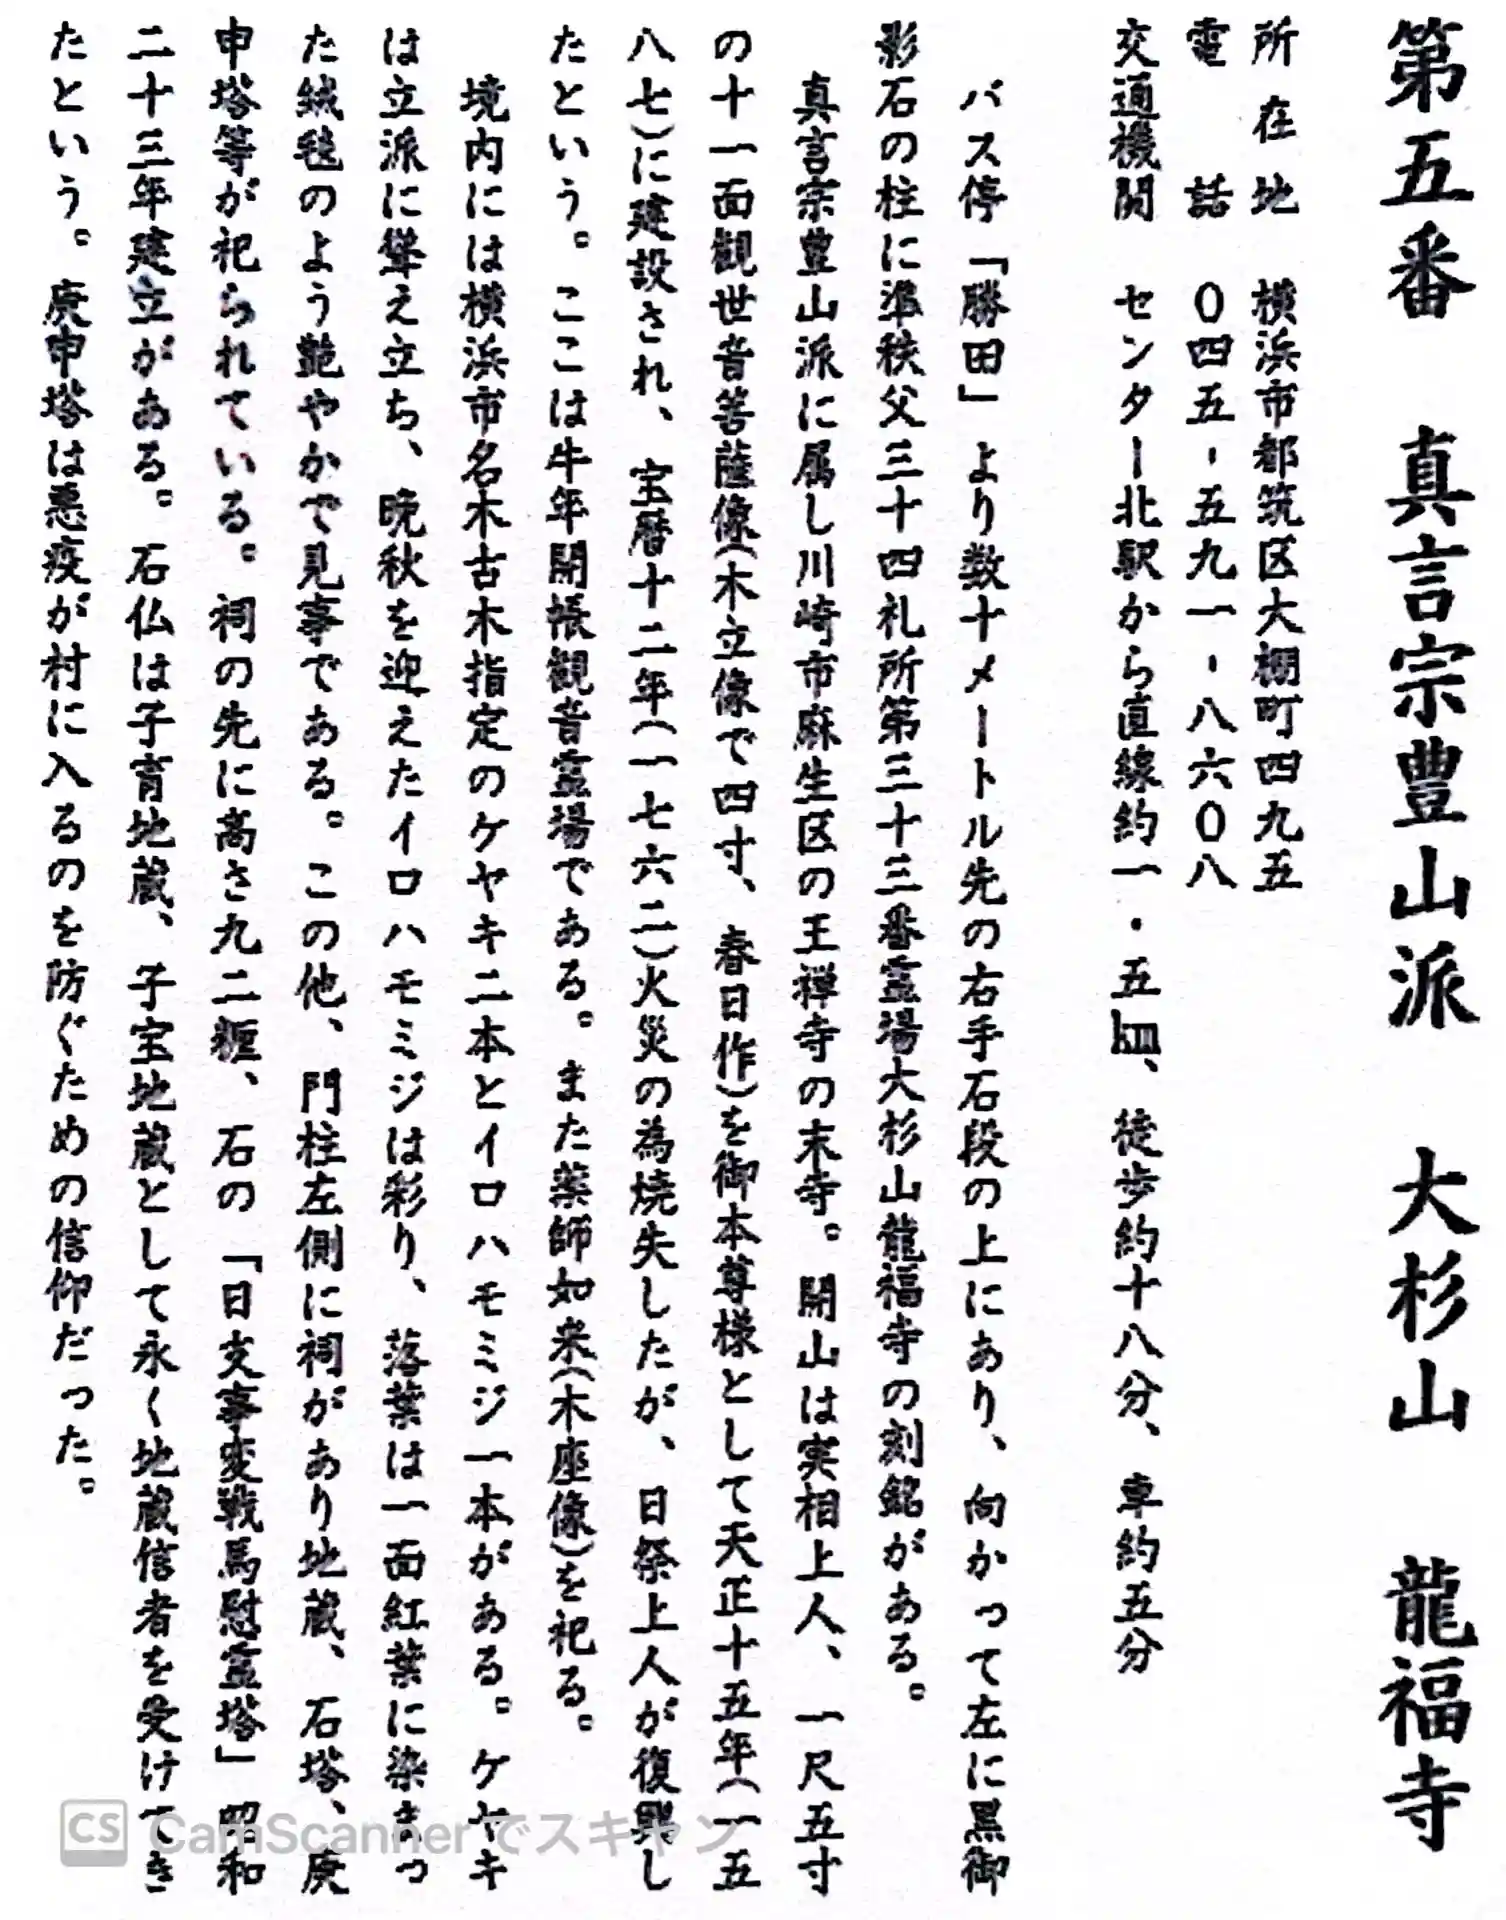 第五番　真言宗豊山派　大杉山　龍福寺
所在地　横浜市都筑区大棚町四九五
電話　〇四五-五九一-八六〇八
交通機関　センター北駅から直線約一・五㎞、徒歩約十八分、車約五分
バス停「勝田」より数十メートル先の右手石段の上にあり、向かって左に黒御
影石の柱に準秩父三十四札所第三十三番霊場大杉山龍福寺の刻銘がある。
真言宗豊山派に属し川崎市麻生区の王禅寺の末寺。開山は実相上人、一尺五寸
の十一面観世音菩薩像(木立像で四寸、春日作)を御本尊様として天正十五年(一五
八七)に建設され、宝暦十二年(一七六二)火災の為焼失したが、日祭上人が復興し
たという。ここは牛年開帳観音霊場である。また薬師如来(木座像)を祀る。
境内には横浜市名木古木指定のケヤキ二本とイロハモミジ一本がある。ケヤキ
は立派に聳え立ち、晩秋を迎えたイロハモミジは彩り、落葉は一面紅葉に染まっ
た絨毯のよう艶やかで見事である。この他、門柱左側に祠があり地蔵、石塔、庚
申塔等が祀られている。祠の先に高さ九二糎、石の「日支事変戦馬慰霊塔」昭和
二十三年建立がある。石仏は子育地蔵、子宝地蔵として永く地蔵信者を受けてき
たという。庚申塔は悪疫が村に入るのを防ぐための信仰だった。
CS CamScannerでスキャン